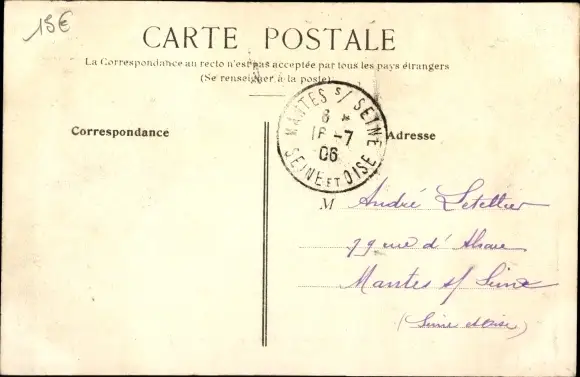 15€
CARTE POSTALE
La Correspondance au recto n'est pas acceptée par tous les pays étrangers
(Se renseigner à la poste)
MANTES s/ SEINE
6 *
16 -7
06
SEINE ET OISE
Correspondance
Adresse
M André Letellier
rue d'Alsace
Mantes s/ Seine
(Seine et Oise)